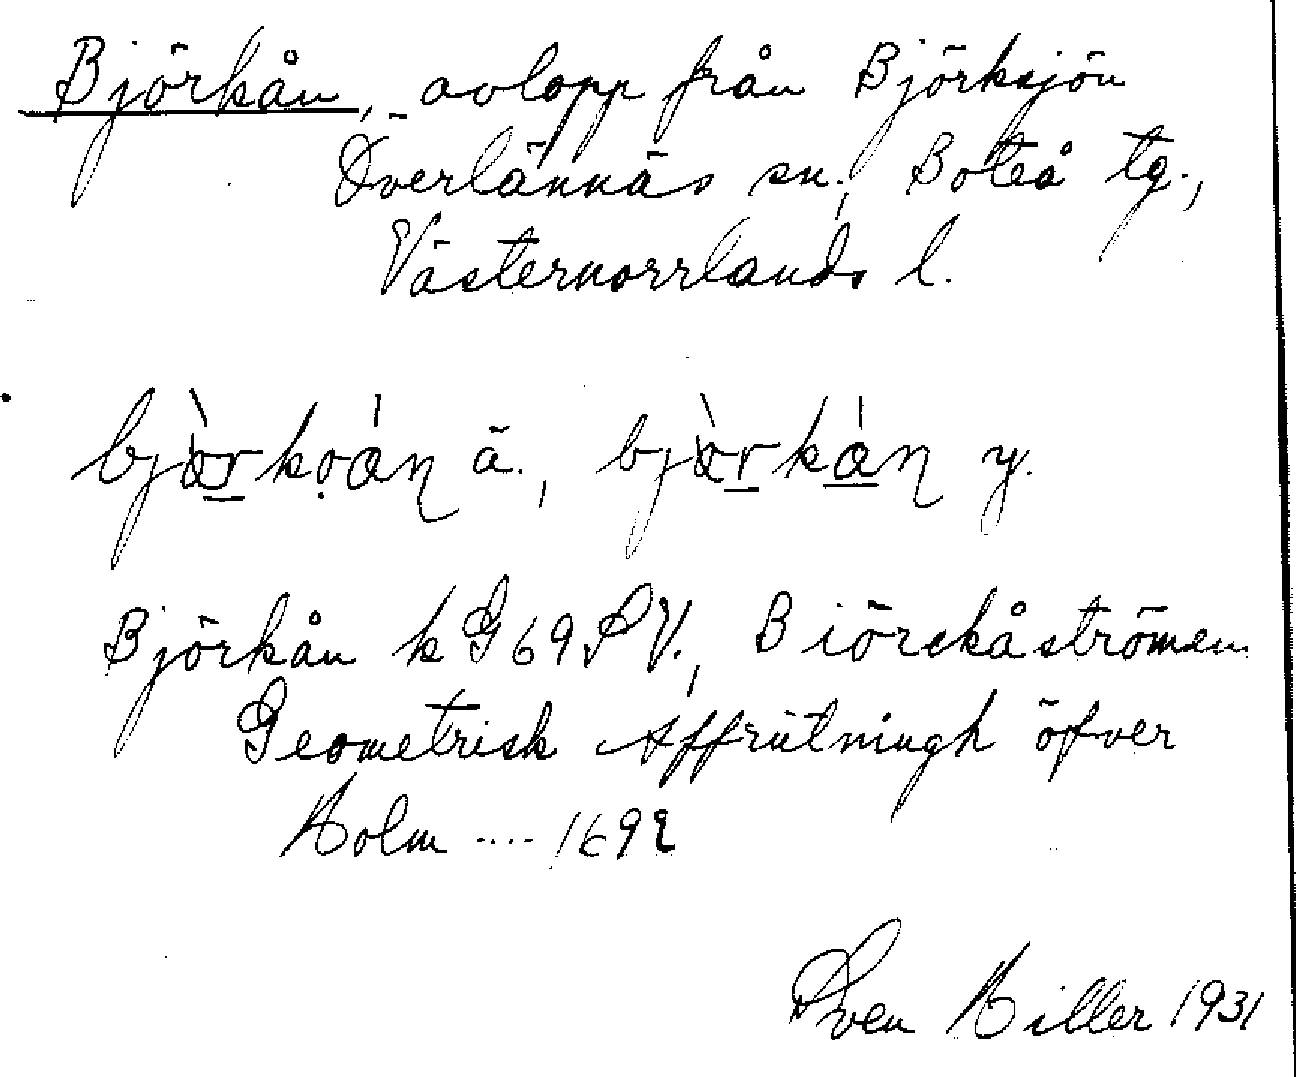 Björkån, avlopp från Björksjön
Överlännäs sn., Boteå tg.,
Västernorrlands l.
bjòrkoán ä., bjòrkán y.
Björkån k G69SV., Biörckåströmen
Geometrisk Affrÿtningh öfver
Holm .... 1692
Sven Hiller 1931